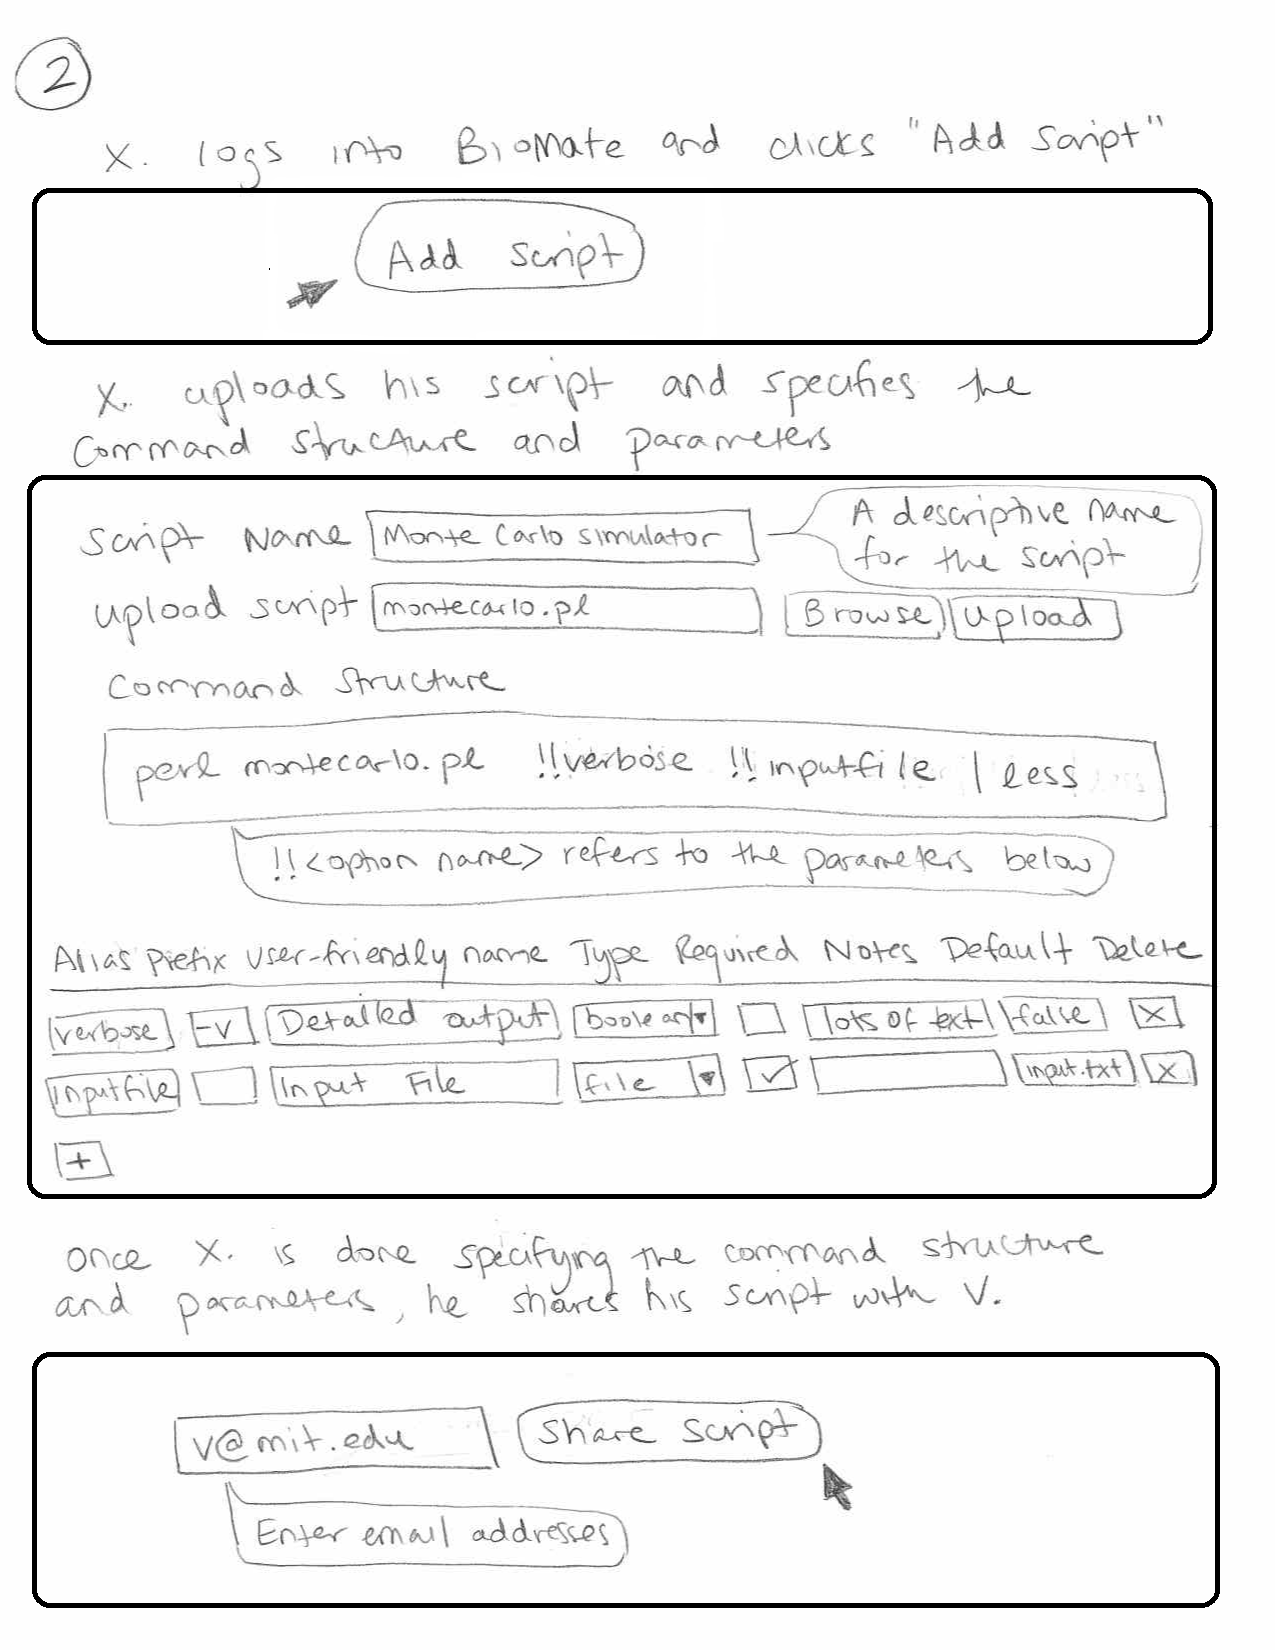 2
X. logs into BioMate and clicks "Add Script"
Add Script
X. uploads his script and specifies the
Command structure and parameters
Script Name Monte Carlo simulator
A descriptive name
for the script
upload script montecarlo.pl Browse Upload
Command Structure
perl montecarlo.pl !!verbose !!inputfile | less
!!<option name> refers to the parameters below
Alias Prefix User-friendly name Type Required Notes Default Delete
verbose -v Detailed output boolean lots of text false X
inputfile Input File file ✓ input.txt X
+
once X. is done specifying the command structure
and parameters, he shares his script with V.
v@mit.edu Share script
Enter email addresses